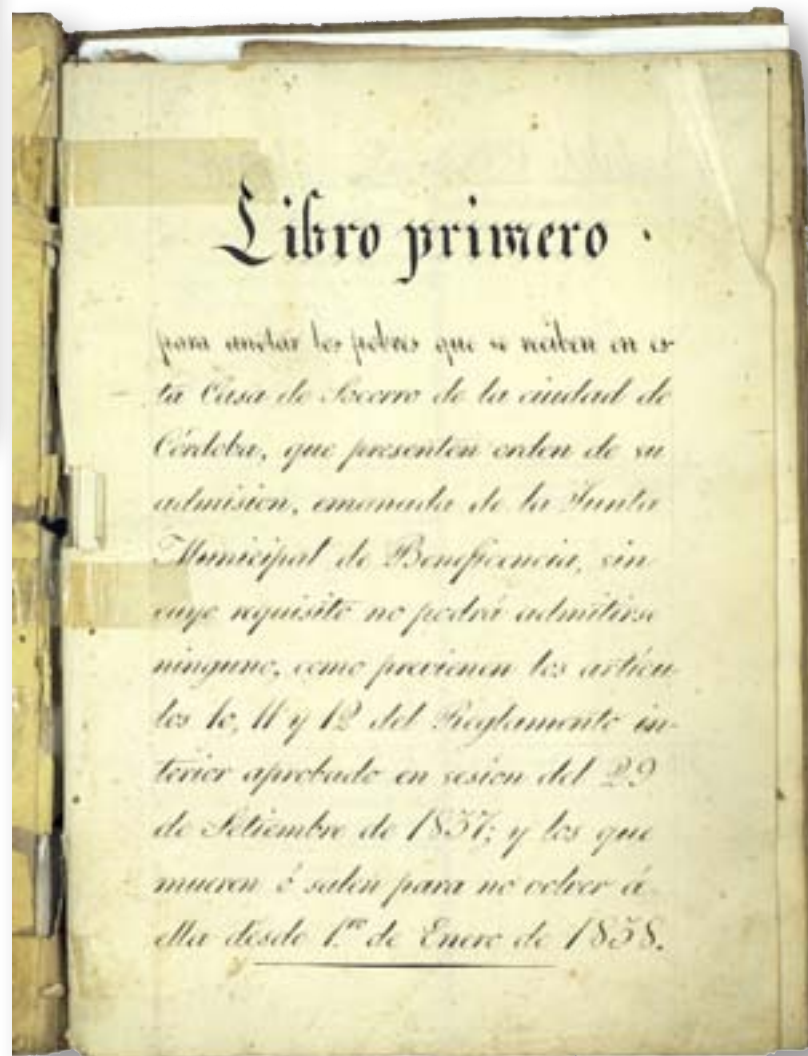 Libro primero.
para anotar los pobres que se reciben en es-
ta Casa de Socorro de la ciudad de
Córdoba, que presenten orden de su
admision, emanada de la Junta
Municipal de Beneficencia, sin
cuyo requisito no podrá admitirse
ninguno, como previenen los artícu-
los 10, 11 y 12 del Reglamento in-
terior aprobado en sesion del 29
de Setiembre de 1837; y los que
mueren ó salen para no volver á
ella desde 1.ro de Enero de 1838.